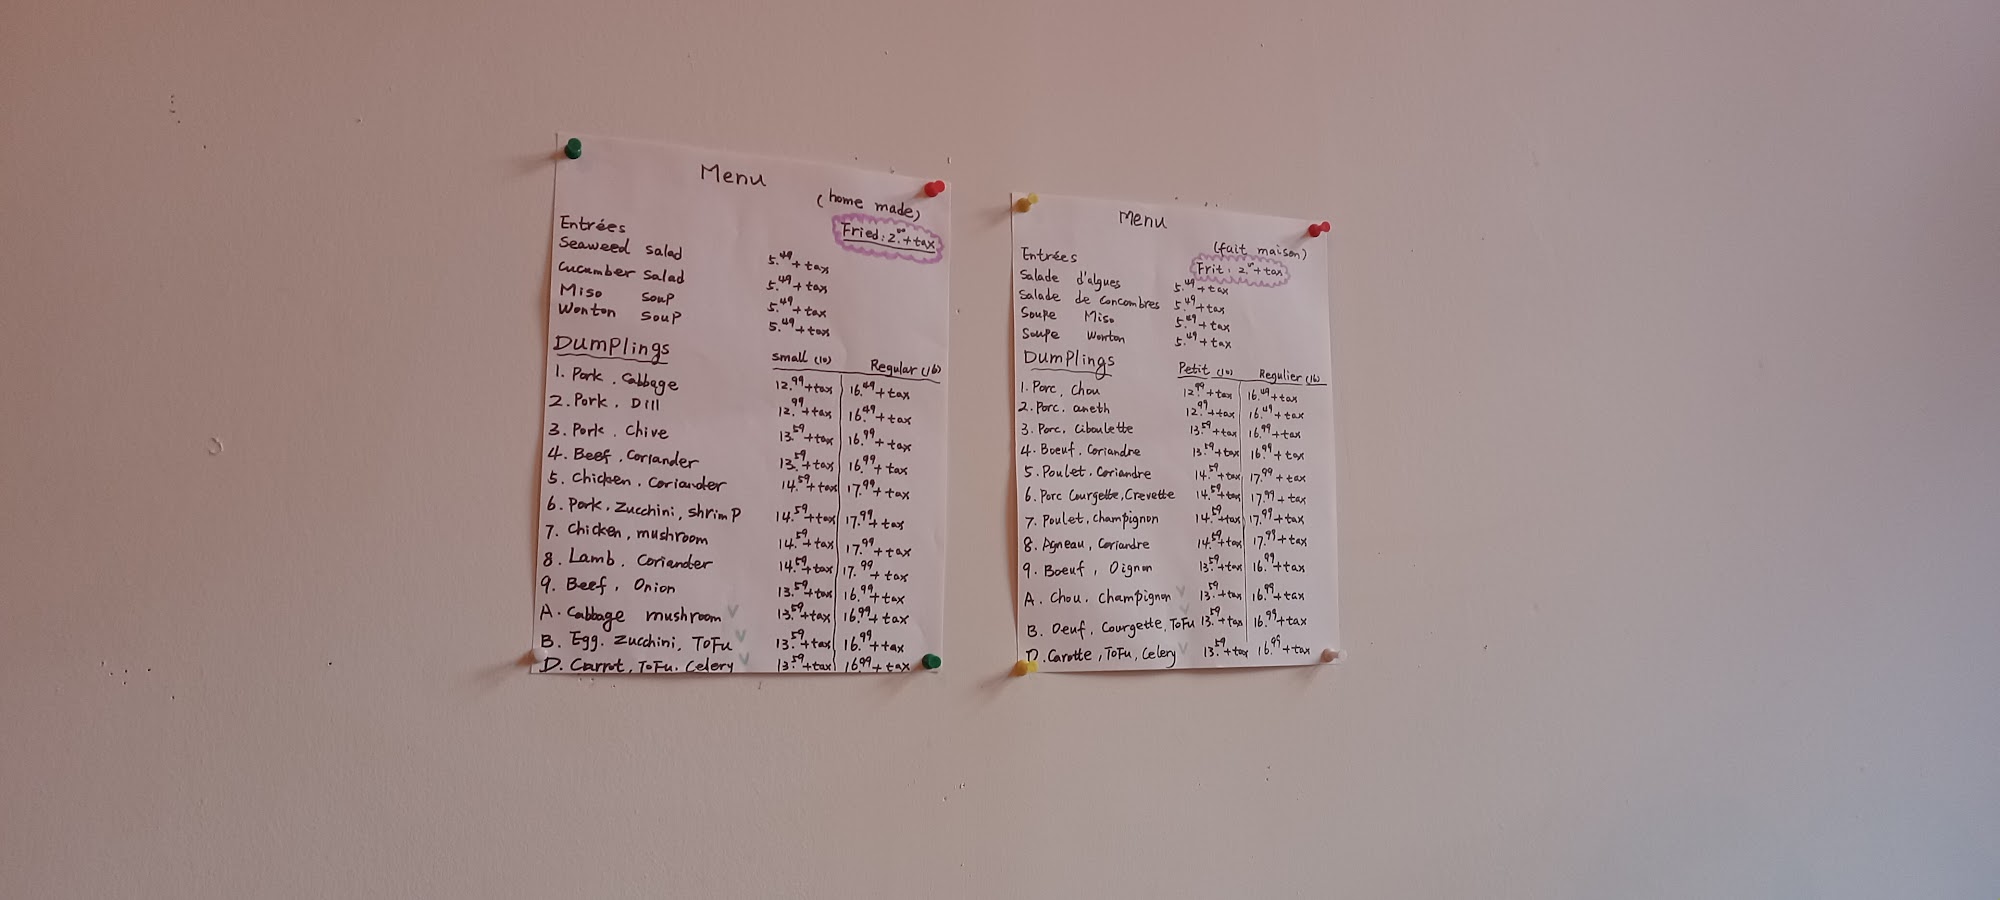 Menu
(home made)
Fried: 2.00+tax
Entrées
Seaweed salad 5.49+tax
Cucumber salad 5.49+tax
Miso soup 5.49+tax
Wonton soup 5.49+tax
Dumplings small (10) Regular (16)
1. Pork. Cabbage 12.99+tax 16.49+tax
2. Pork. Dill 12.99+tax 16.49+tax
3. Pork. Chive 13.59+tax 16.99+tax
4. Beef. Coriander 13.59+tax 16.99+tax
5. Chicken. Coriander 14.59+tax 17.99+tax
6. Pork. Zucchini, shrimp 14.59+tax 17.99+tax
7. Chicken, mushroom 14.59+tax 17.99+tax
8. Lamb. Coriander 14.59+tax 17.99+tax
9. Beef, Onion 13.59+tax 16.99+tax
A. Cabbage mushroom V 13.59+tax 16.99+tax
B. Egg. Zucchini, ToFu V 13.59+tax 16.99+tax
D. Carrot, ToFu. Celery V 13.59+tax 16.99+tax
Menu
(fait maison)
Frit: 2.00+tax
Entrées
Salade d'algues 5.49+tax
Salade de Concombres 5.49+tax
Soupe Miso 5.49+tax
Soupe Wonton 5.49+tax
Dumplings Petit (10) Regulier (16)
1. Porc, Chou 12.99+tax 16.49+tax
2. Porc. aneth 12.99+tax 16.49+tax
3. Porc. Ciboulette 13.59+tax 16.99+tax
4. Boeuf. Coriandre 13.59+tax 16.99+tax
5. Poulet. Coriandre 14.59+tax 17.99+tax
6. Porc Courgette, Crevette 14.59+tax 17.99+tax
7. Poulet, champignon 14.59+tax 17.99+tax
8. Agneau, Coriandre 14.59+tax 17.99+tax
9. Boeuf, Oignon 13.59+tax 16.99+tax
A. Chou. Champignon V 13.59+tax 16.99+tax
B. Oeuf, Courgette, ToFu V 13.59+tax 16.99+tax
D. Carotte, ToFu, Celery V 13.59+tax 16.99+tax